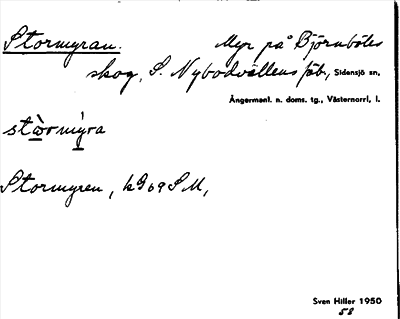 Stormyran. Myr på Björnböles
skog, S. Nybodvallens fäb., Sidensjö sn,
Ångermanl. n. doms. tg., Västernorrl, l.
stòrmýra
Stormyren, k969SM,
Sven Hiller 1950
58